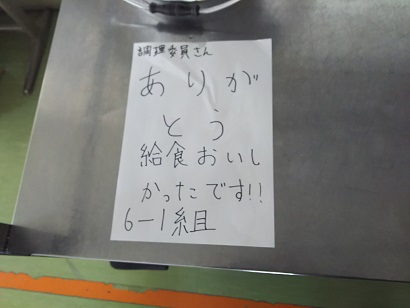 調理委員さん
ありが
とう
給食おいし
かったです!!
6-1組